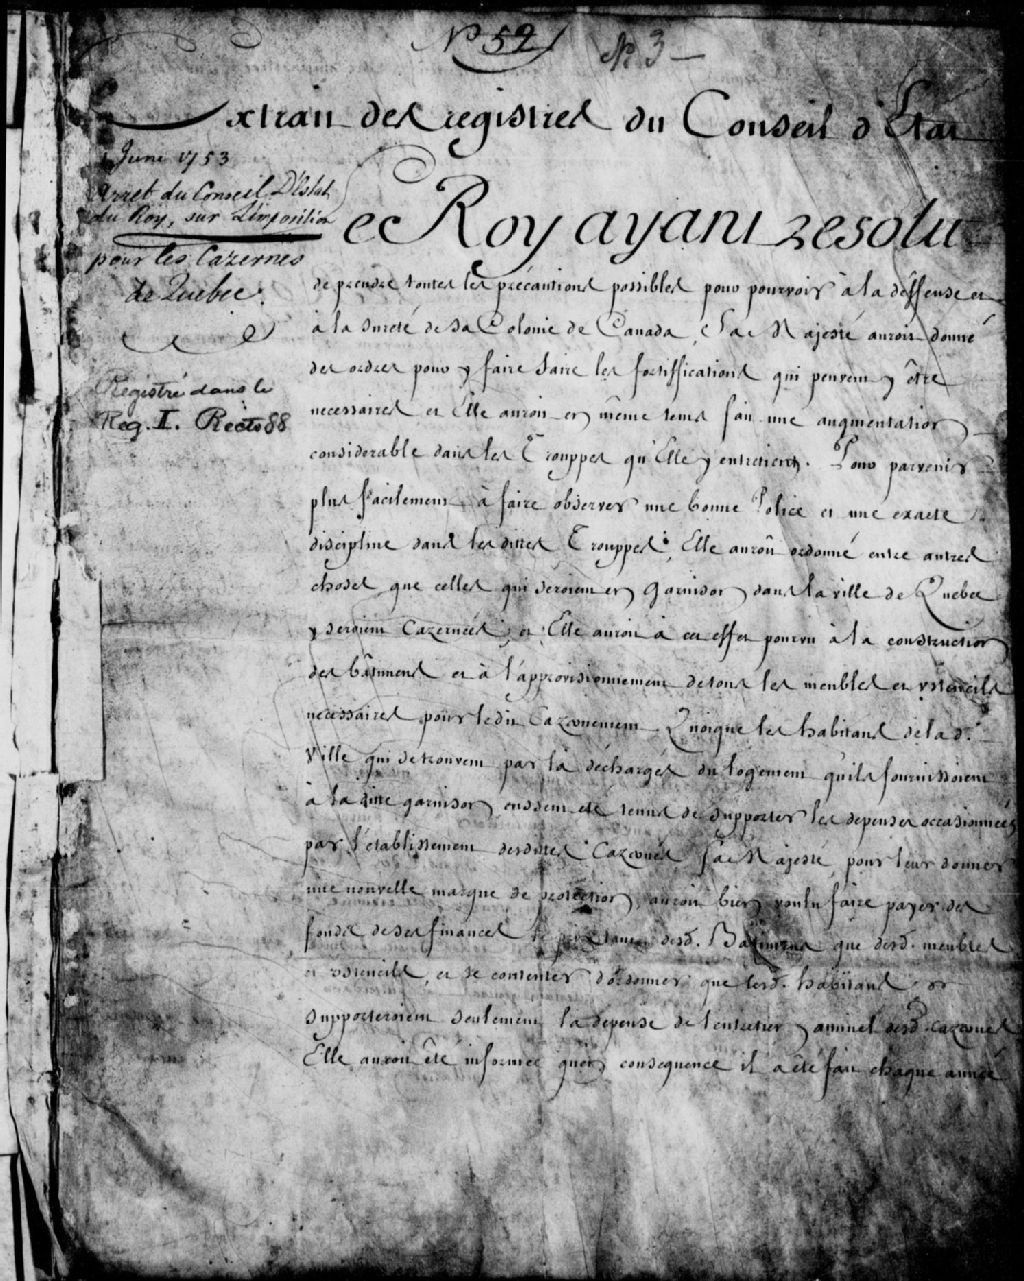 N.º 52
N.º 3 —
Extrait des registres du Conseil d'Etat
1 Juni 1753
Arret du Conseil D'Estat
du Roy, sur L'imposition
pour les Cazernes
de Quebec.
Registré dans le
Reg. I. Recto 88
Le Roy ayant resolu
de prendre toutes les précautions possibles pour pourvoir à la déffense et
à la sureté de sa Colonie de Canada, Sa Majesté auroit donné
des ordres pour y faire faire les fortiffications qui peuvent y être
necessaires et Elle auroit en même tems fait une augmentation
considerable dans les Trouppes qu'Elle y entretient. Pour parvenir
plus facilement à faire observer une bonne Police et une exacte
discipline dans lesdittes Trouppes, Elle auroit ordonné entre autres
choses que celles qui seroient en garnison dans la ville de Quebec
y seroient Cazernées, et Elle auroit à cet effet pourvu à la construction
des bâtimens et à l'approvisionnement de tous les meubles et ustencils
necessaires pour ledit Cazernement Quoique les habitans de la d.
Ville qui se trouvent par là déchargés du logement qu'ils fournissoient
à la ditte garnison eussent été tenus de supporter les depenses occasionnées
par l'établissement desdittes Cazernes, Sa Majesté, pour leur donner
une nouvelle marque de protection, auroit bien voulu faire payer des
fonds de ses finances le prix tant desd. Batimens que desd. meubles
et ustencils, et se contenter d'ordonner que lesd. habitans
supporteroient seulement la depense de l'entretien annuel desd. cazernes
Elle auroit été informée qu'en consequence il a été fait chaque année